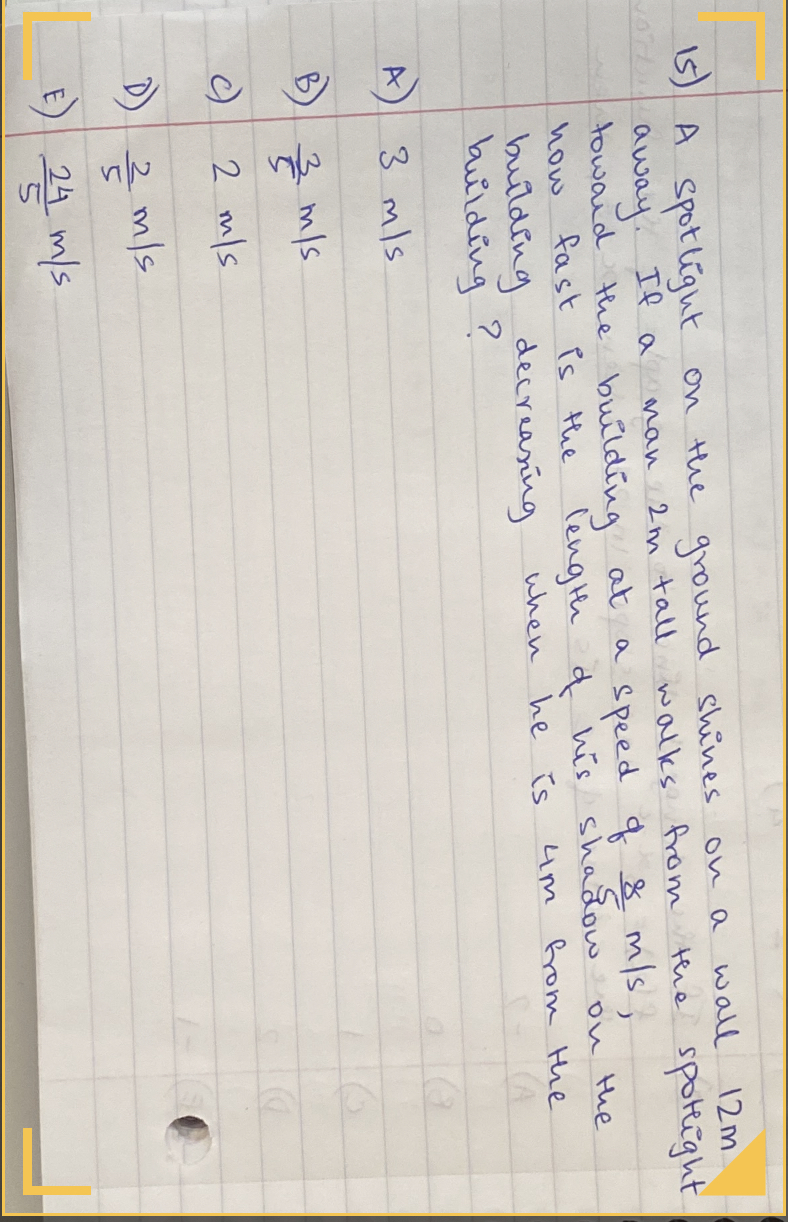 15) A spotlight on the ground shines on a wall 12m
away. If a man 2m tall walks from the spotlight
toward the building at a speed of 8/5 m/s,
how fast is the length of his shadow on the
building decreasing when he is 4m from the
building?
A) 3 m/s
B) 3/5 m/s
C) 2 m/s
D) 2/5 m/s
E) 24/5 m/s